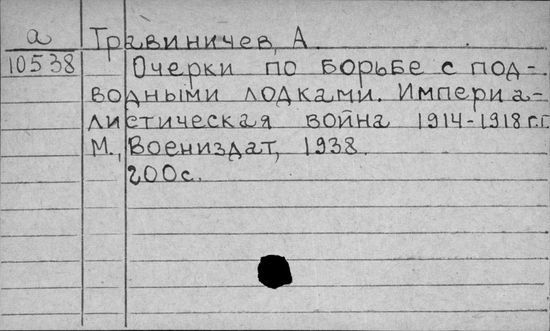 а Травиничев, А.
10538 Очерки по борьбе с под-
водными лодками. Империа-
листическая война 1914-1918 г.г.
М., Воениздат, 1938.
200с.